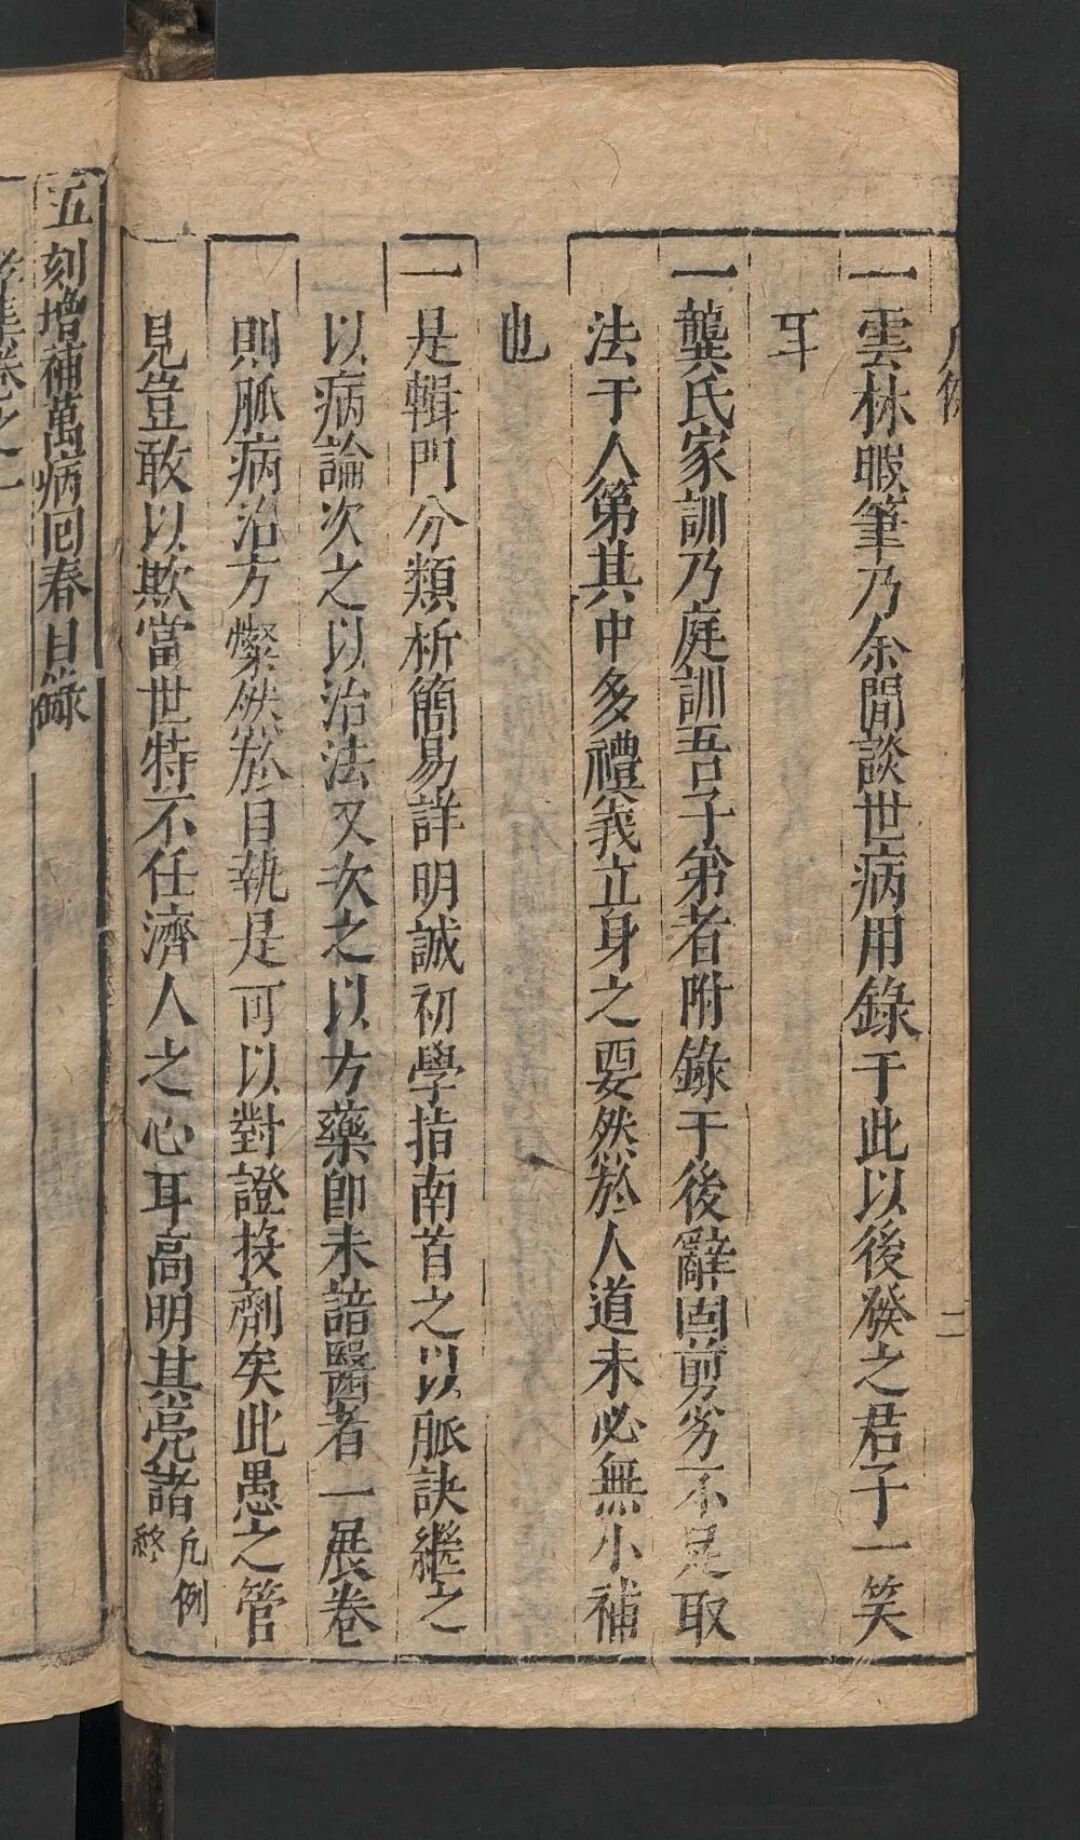 凡例
二
一雲林暇筆乃余閒談世病用錄于此以後發之君子一笑
耳
一龔氏家訓乃庭訓吾子弟者附錄于後辭固剪劣不足取
法于人第其中多禮義立身之要然於人道未必無小補
也
一是輯門分類析簡易詳明誠初學指南首之以脈訣繼之
以病論次之以治法又次之以方藥卽未諳醫者一展卷
則脈病治方燦然於目執是可以對證投劑矣此愚之管
見豈敢以欺當世特不任濟人之心耳高明其亮諸
凡例
終
五刻增補萬病回春目錄
卷之一